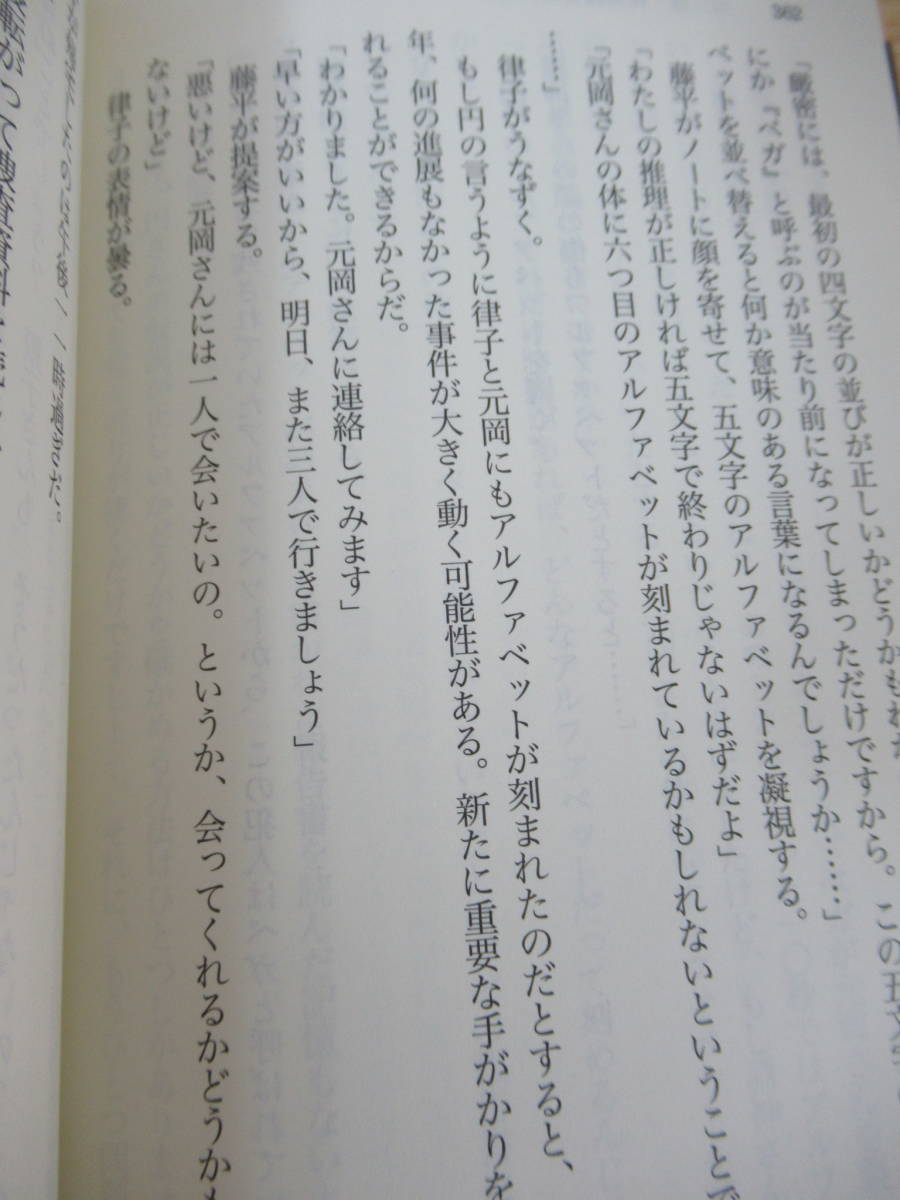 362
「厳密には、最初の四文字の並びが正しいかどうかもわか
にか『ベガ』と呼ぶのが当たり前になってしまっただけですから。この五文字
ベットを並べ替えると何か意味のある言葉になるんでしょうか……」
藤平がノートに顔を寄せて、五文字のアルファベットを凝視する。
「わたしの推理が正しければ五文字で終わりじゃないはずだよ」
「元岡さんの体に六つ目のアルファベットが刻まれているかもしれないということで
……」
律子がうなずく。
もし円の言うように律子と元岡にもアルファベットが刻まれたのだとすると、
年、何の進展もなかった事件が大きく動く可能性がある。新たに重要な手がかりを
れることができるからだ。
「わかりました。元岡さんに連絡してみます」
「早い方がいいから、明日、また三人で行きましょう」
藤平が提案する。
「悪いけど、元岡さんには一人で会いたいの。というか、会ってくれるかどうか
ないけど」
律子の表情が曇る。
時過ぎだ。